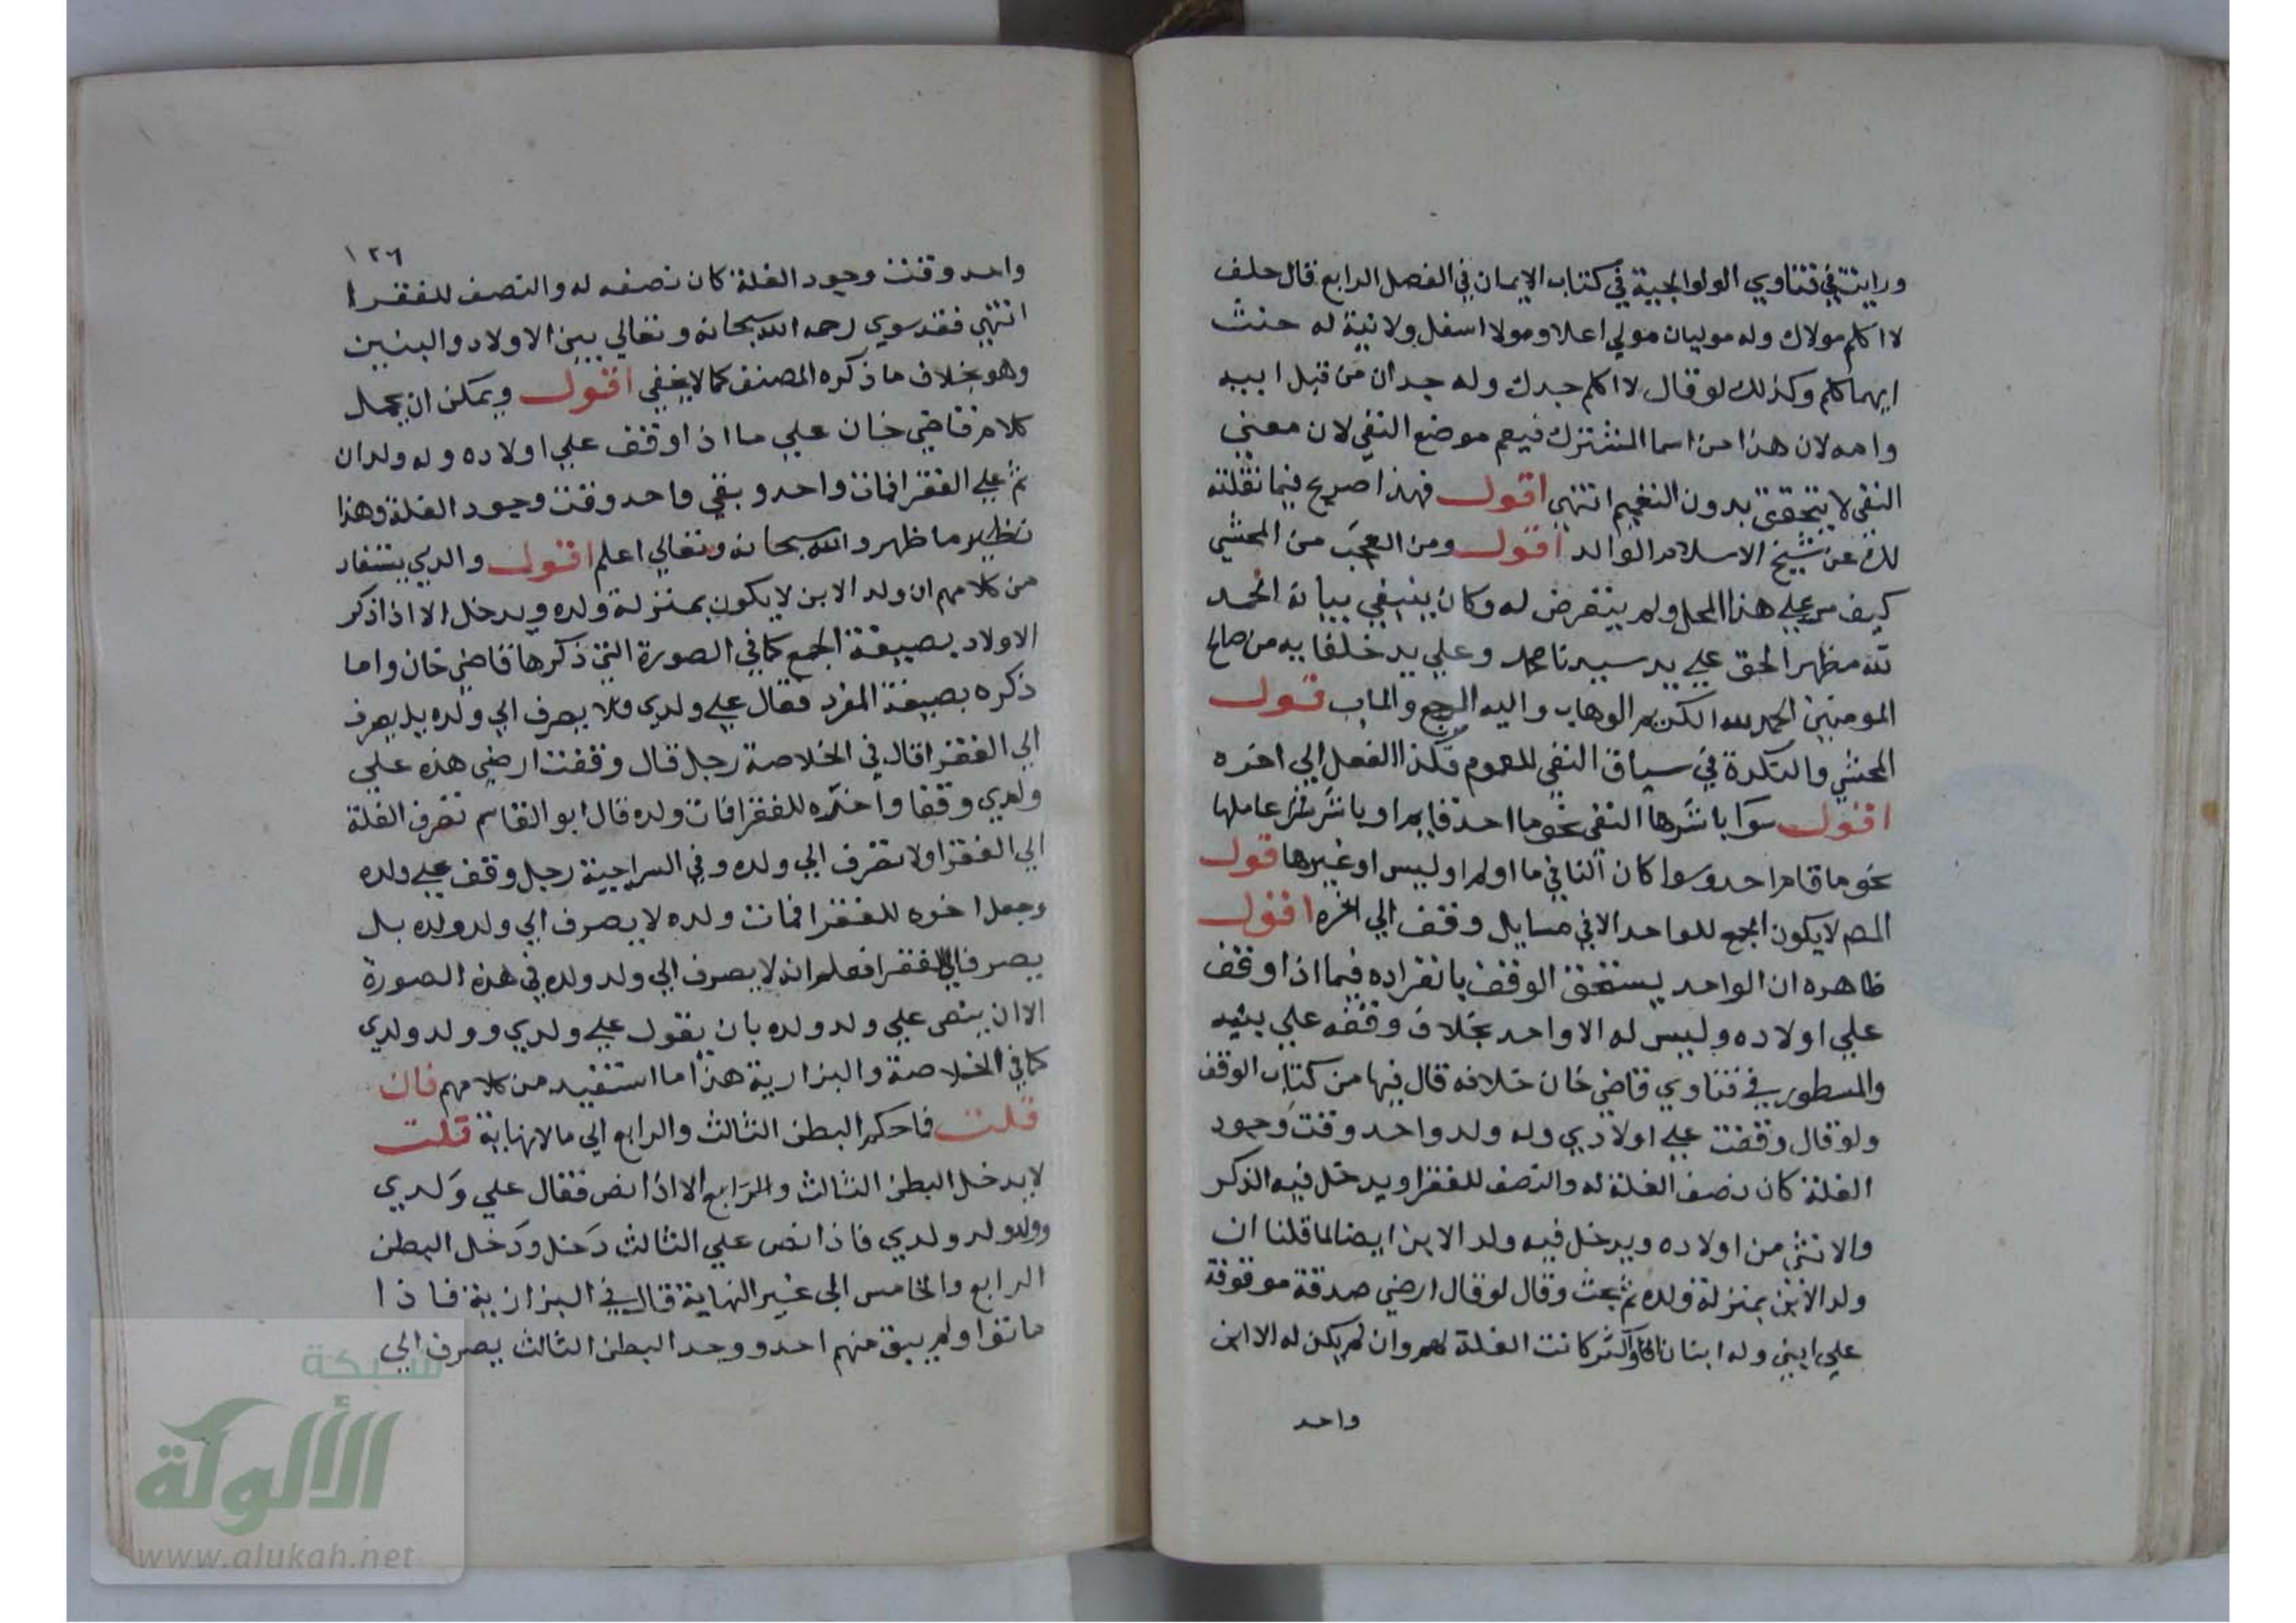 ورايت في فتاوي الولوالجية في كتاب الايمان في الفصل الرابع قال حلف
لا اكلم مولاك وله موليان مولي اعلا ومولا اسفل ولا نية له حنث
ايهما كلم وكذلك لو قال لا اكلم جدك وله جدان من قبل ابيه
وامه لان هذا من اسما المشترك فيعم موضع النفي لان معني
النفي لا يتحقق بدون التعميم انتهي اقول فهذا صريح فيما نقلته
لك عن شيخ الاسلام الوالد اقول ومن العجب من المحشي
كيف مر علي هذا المحل ولم يتعرض له وكان ينبغي بيانه الحمد
لله مظهر الحق علي يد سيدنا محمد وعلي يد خلفايه من صالح
المومنين الحمد لله الكريم الوهاب واليه المرجع والماب قول
المحشي والنكرة في سياق النفي للعموم فكذا الفعل الي اخره
اقول سوا باشرها النفي نحو ما احد قايم او باشر عاملها
نحو ما قام احد وسوا كان النافي ما او لم او ليس او غيرها قول
المص لا يكون الجمع للواحد الا في مسايل وقف الي اخره اقول
ظاهره ان الواحد يستحق الوقف بانفراده فيما اذا وقف
علي اولاده وليس له الا واحد بخلاف وقفه علي بنيه
والمسطور في فتاوي قاضي خان خلافه قال فيها من كتاب الوقف
ولو قال وقفت علي اولادي وله ولد واحد وقت وجود
الغلة كان نصف الغلة له والنصف للفقرا ويدخل فيه الذكر
والانثي من اولاده ويدخل فيه ولد الابن ايضا لما قلنا ان
ولد الابن بمنزلة ولده ثم بحث وقال لو قال ارضي صدقة موقوفة
علي ابني وله ابنان فاكثر كانت الغلة لهم وان لم يكن له الا ابن
واحد
١٢٦
واحد وقت وجود الغلة كان نصفه له والنصف للفقرا
انتهي فقد سوي رحمه الله سبحانه وتعالي بين الاولاد والبنين
وهو بخلاف ما ذكره المصنف كما لا يخفي اقول ويمكن ان يحمل
كلام قاضي خان علي ما اذا وقف علي اولاده وله ولدان
ثم علي الفقرا فمات واحد وبقي واحد وقت وجود الغلة وهذا
نظير ما ظهر والله سبحانه وتعالي اعلم اقول والذي يستفاد
من كلامهم ان ولد الابن لا يكون بمنزلة ولده ويدخل الا اذا ذكر
الاولاد بصيغة الجمع كما في الصورة التي ذكرها قاضي خان واما
ذكره بصيغة المفرد فقال علي ولدي فلا يصرف الي ولده بل يصرف
الي الفقرا قال في الخلاصة رجل قال وقفت ارضي هذه علي
ولدي وقفا واخره للفقرا فمات ولده قال ابو القاسم تصرف الغلة
الي الفقرا ولا تصرف الي ولده وفي السراجية رجل وقف علي ولده
وجعل اخره للفقرا فمات ولده لا يصرف الي ولد ولده بل
يصرف الي الفقرا فعلم انه لا يصرف الي ولد ولده في هذه الصورة
الا ان ينص علي ولد ولده بان يقول علي ولدي وولد ولدي
كما في الخلاصة والبزازية هذا ما استفيد من كلامهم فان
قلت فما حكم البطن الثالث والرابع الي ما لا نهاية قلت
لا يدخل البطن الثالث والرابع الا اذا نص فقال علي ولدي
وولد ولد ولدي فاذا نص علي الثالث دخل ودخل البطن
الرابع والخامس الي غير النهاية قال في البزازية فاذا
ماتوا ولم يبق منهم احد ووجد البطن الثالث يصرف الي
شبكة
الألوكة
www.alukah.net